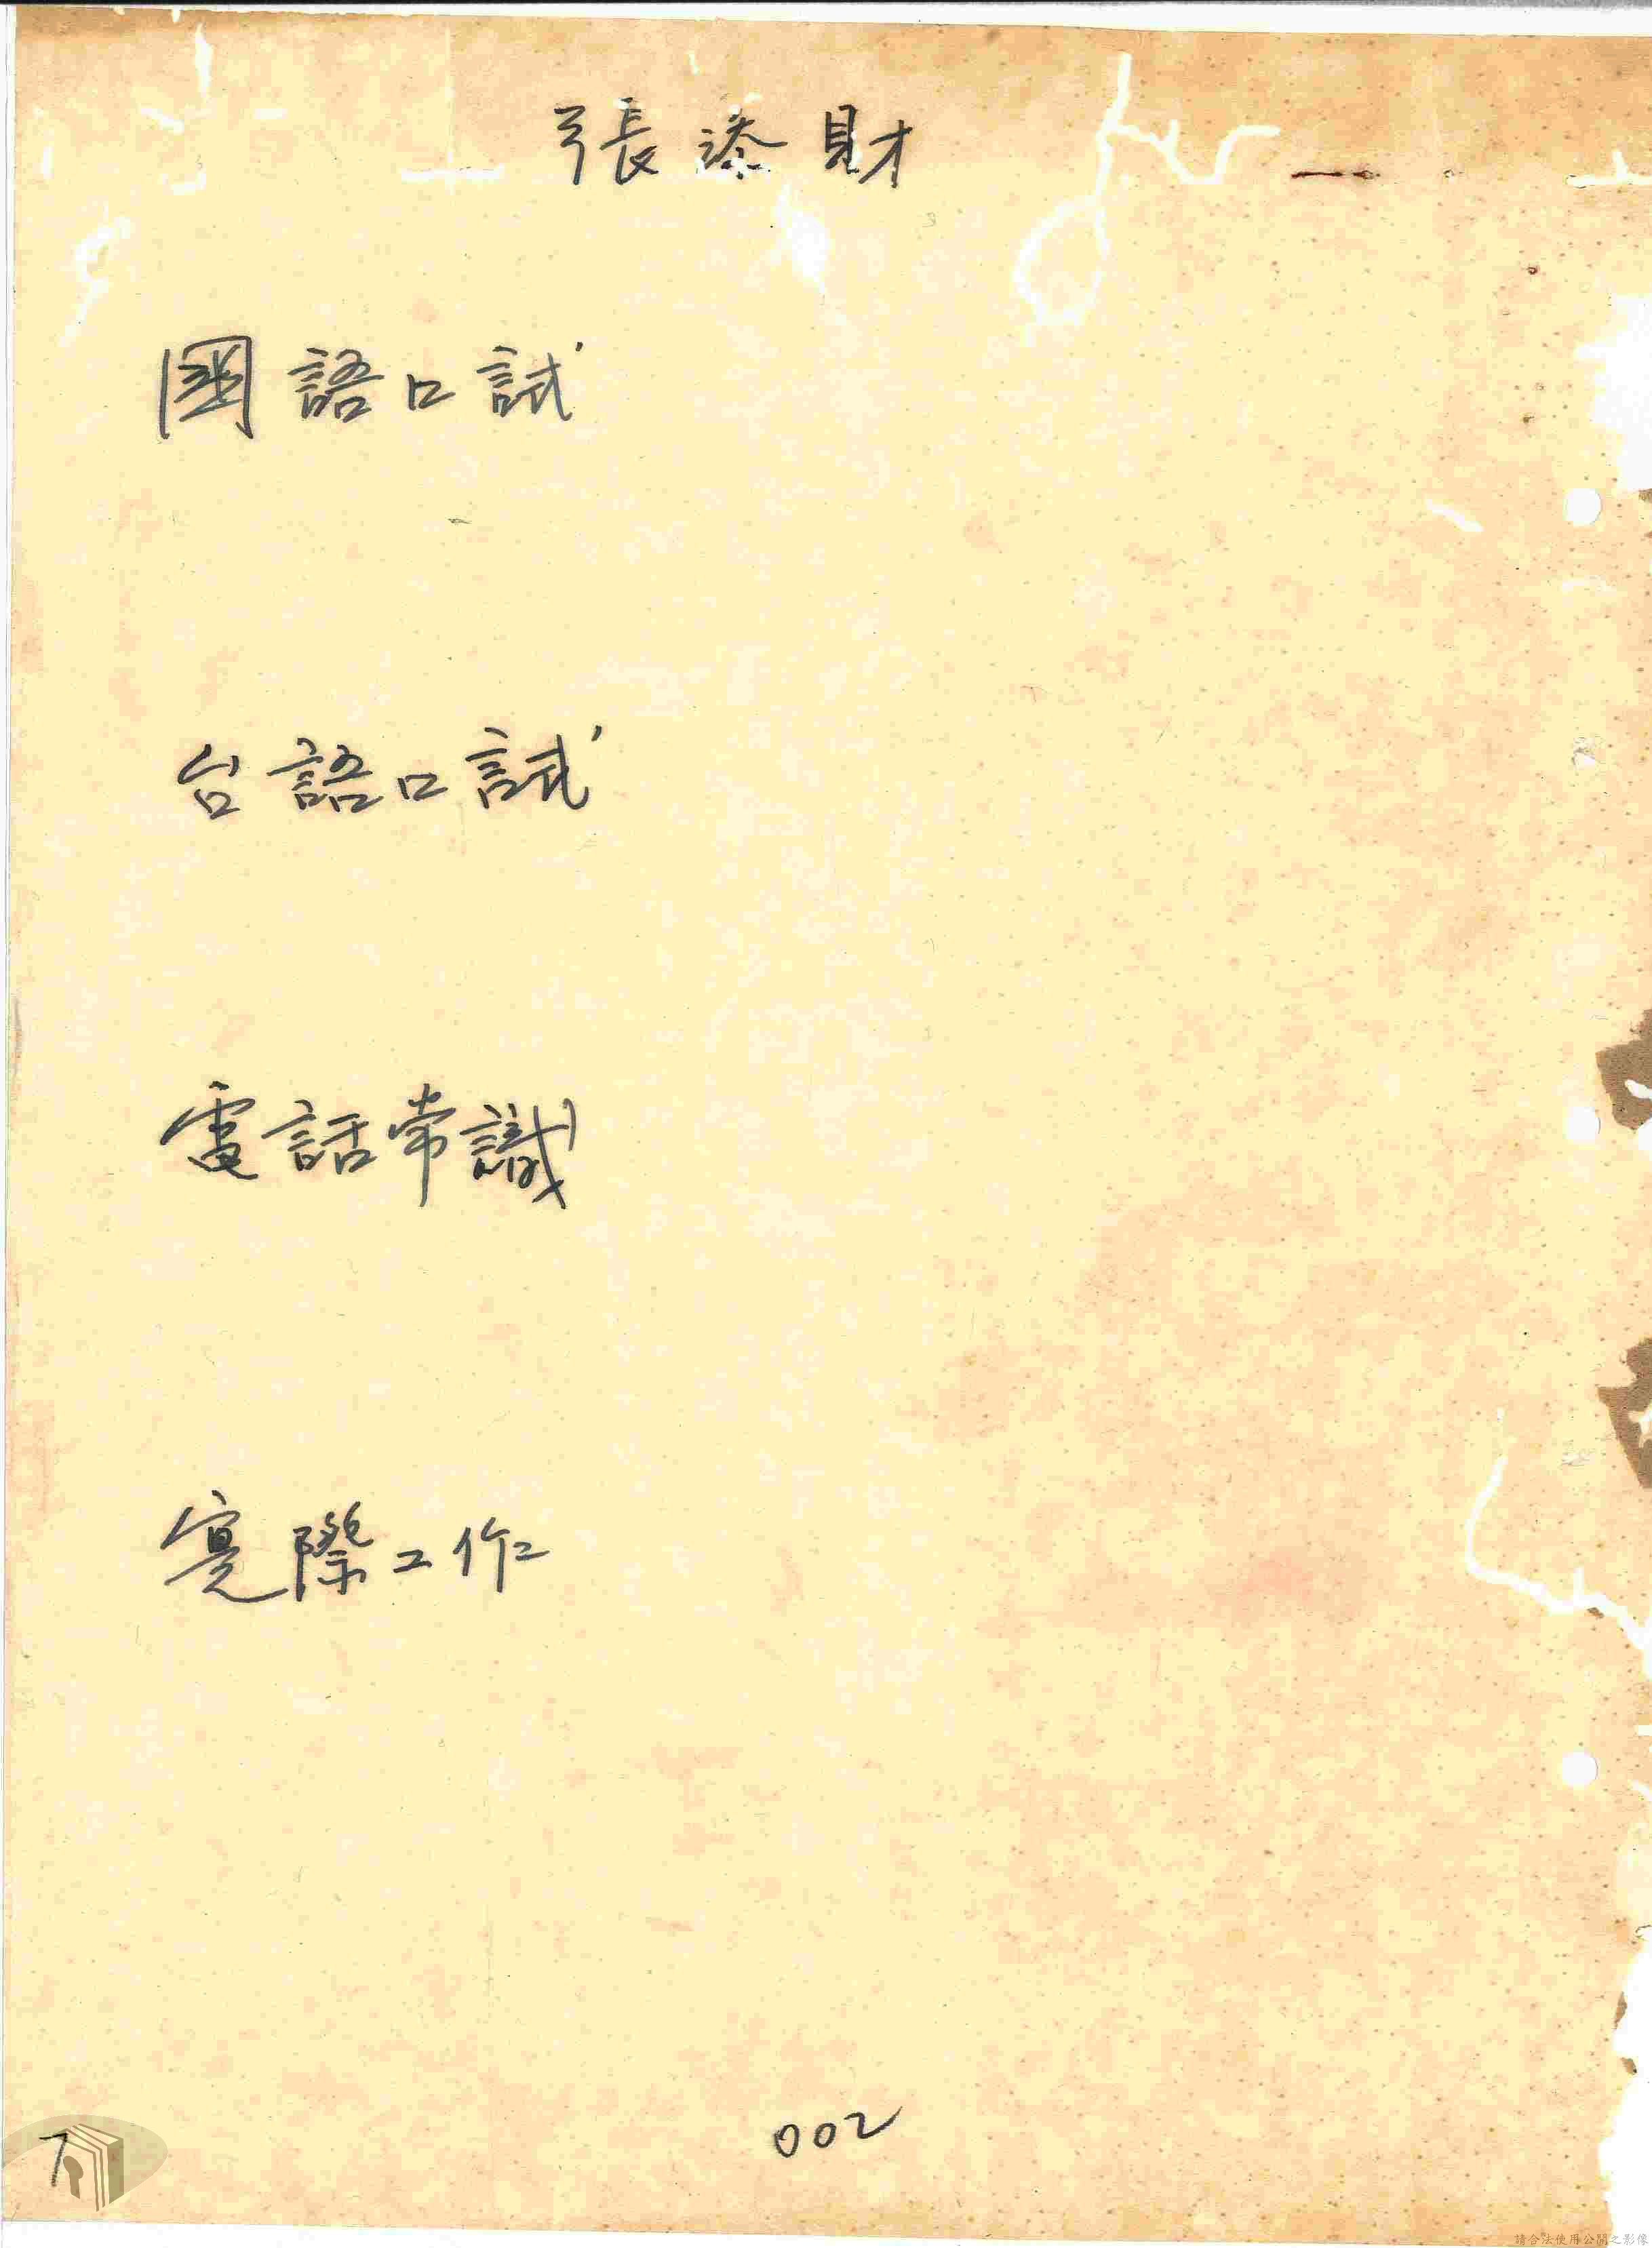 張添財
國語口試
台語口試
電話常識
實際工作
002
7
請合法使用公開之影像